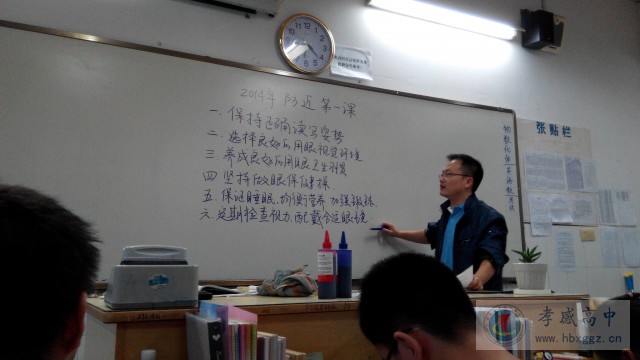 2014年 防近 第一课
一. 保持正确读写姿势
二. 选择良好的用眼视觉环境
三 养成良好的用眼卫生习惯
四 坚持做眼保健操
五. 保证睡眠, 均衡营养 加强锻炼
六. 定期检查视力, 配戴合适眼镜
张贴栏
孝感高中
www.hbxggz.cn